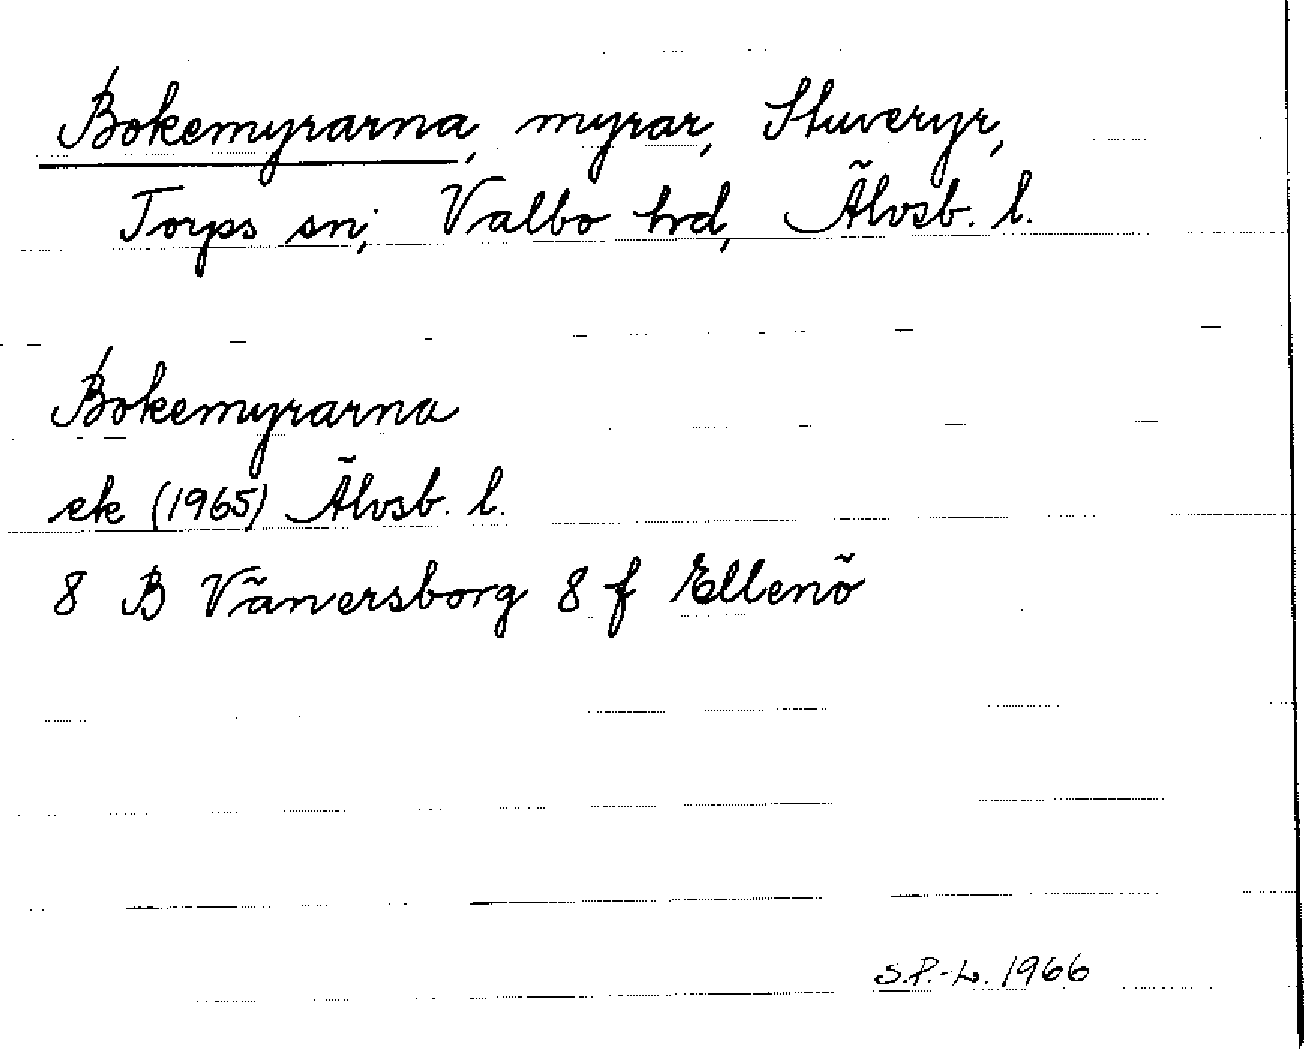 Bokemyrarna, myrar, Stuveryr,
Torps sn, Valbo hrd, Älvsb. l.
Bokemyrarna
ek (1965) Älvsb. l.
8 B Vänersborg 8 f Ellenö
S.P.-L. 1966